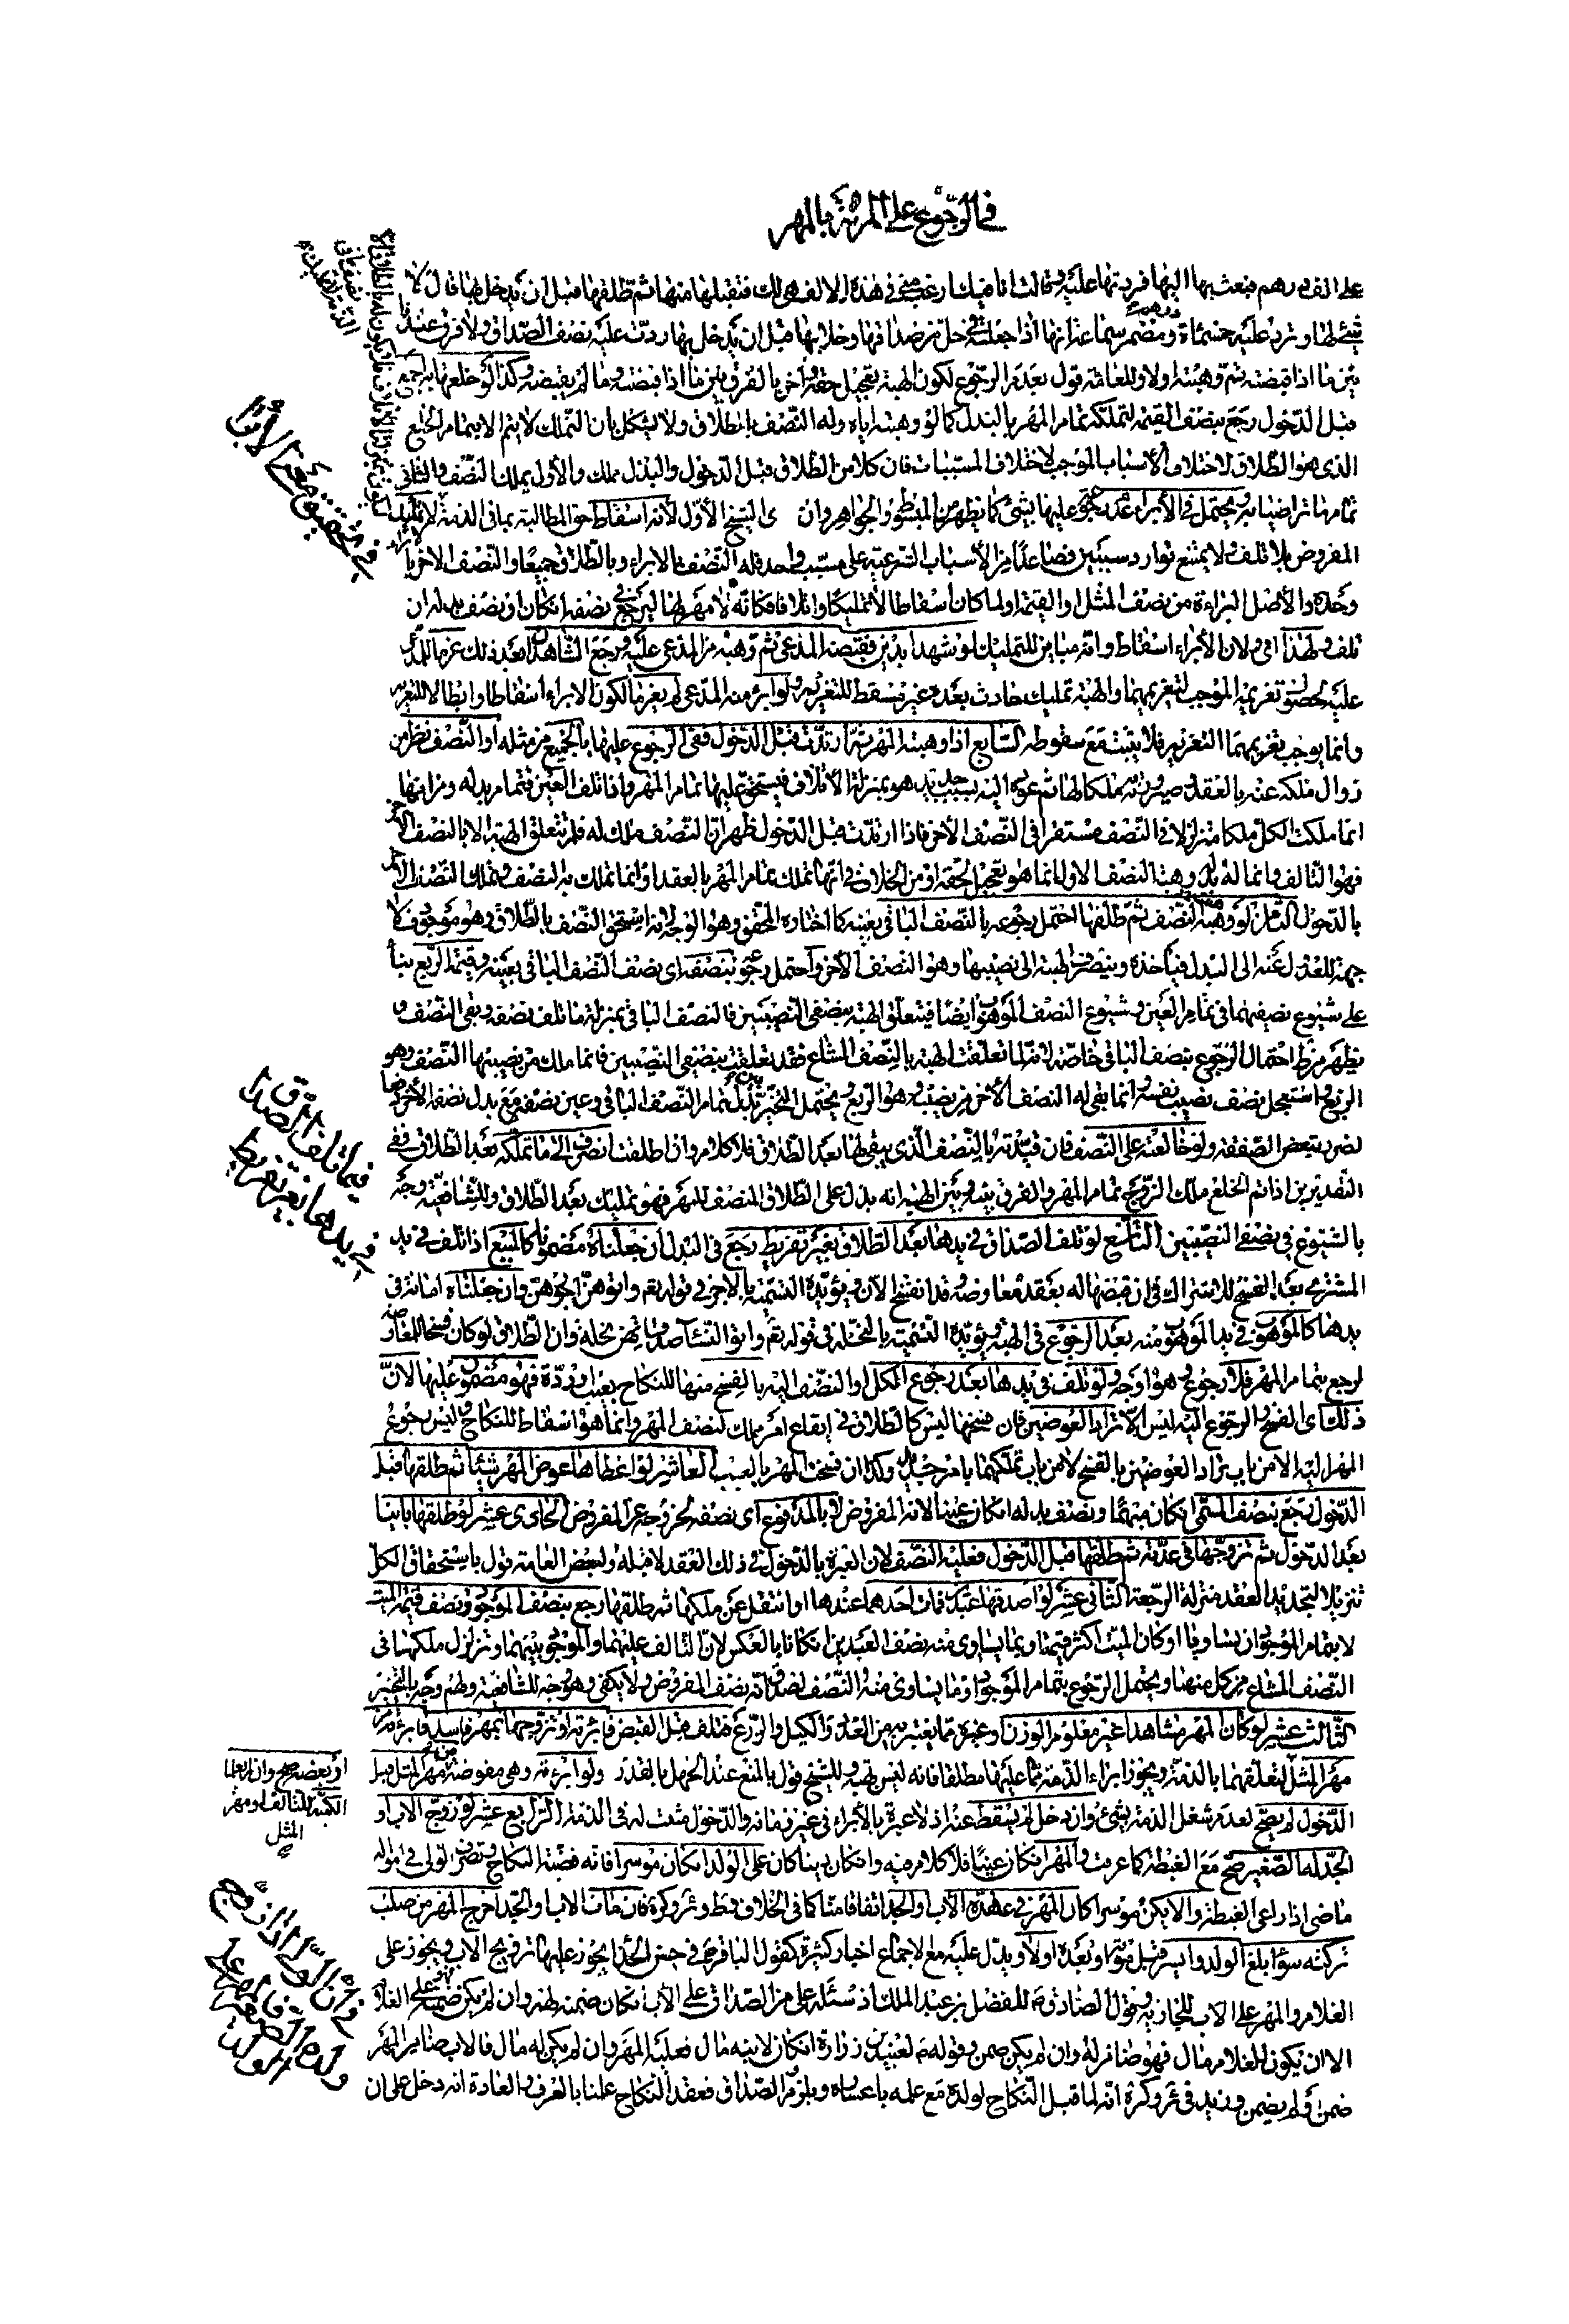 في الرجوع على المرأة بالمهر
على الف درهم فبعث بها اليها فردتها عليه وقالت انا فيك ارغب مني في هذه الالف هي لك فتقبلها منها ثم طلقها قبل ان يدخل بها قال لا
شيء لها وترد عليه خمسمائة درهم ومضمر سماعة انها اذا جعلته في حل من صداقها وخلا بها قبل ان يدخل بها ردت عليه نصف الصداق ولا فرق عندنا
بين ما اذا قبضته ثم وهبته اولا وللعامة قول بعدم الرجوع لكون الهبة تعجيل حقه واخر بالفرق بين ما اذا قبضته وما لم يقبضه وكذا لو خلعها به اجمع
قبل الدخول رجع بنصف القيمة لتملكه تمام المهر بالبذل كما لو وهبته اياه وله النصف بالطلاق ولا يشكل بان التملك لا يتم الا بتمام الخلع
الذي هو الطلاق لاختلاف الاسباب الموجب لاختلاف المسببات فان كلا من الطلاق قبل الدخول والبذل مملك والاول يملك النصف والثاني
تمام ما تراضيا به ويحتمل في الابراء عدم رجوعه عليها بشيء كما يظهر من المبسوط والجواهر وان قوى الشيخ الاول لانه اسقاط حق المطالبة بما في الذمة لا تمليك
المفروض بلا تلف ولا يمتنع توارد سببين فصاعدا من الاسباب الشرعية على مسبب واحد فله النصف بالابراء وبالطلاق جميعا والنصف الاخر بالابراء
وحده والاصل البراءة من نصف المثل او القيمة ولما كان اسقاطا لا تمليكا واتلافا فكانه لا مهر لها ليرجع في نصفه ان كان او نصف بدله ان
تلف ولهذا اي ولان الابراء اسقاط وانه مباين للتمليك لو شهدا بدين فقبضه المدعي ثم وهبه من المدعى عليه ورجع الشاهدان بعد ذلك غرما للمدعى
عليه لحصول تغريمه الموجب لتغريمهما والهبة تمليك حادث بعده غير مسقط للتغريم ولو ابرء منه المدعي لم يغرما لكون الابراء اسقاطا وابطالا للتغريم
وانما يوجب تغريمهما التغريم فلا يثبت مع سقوطه السابع اذا وهبته المهر ثم ارتدت قبل الدخول ففي الرجوع عليها بالجميع من مثله او النصف نظر من
زوال ملكه عنه بالعقد وصيرورته ملكا لها ثم عوده اليه بسبب جديد هو بمنزلة الاتلاف فيستحق عليها تمام المهر واذا تلف العين فتمام بدله ومن انها
انما ملكت الكل ملكا متزلزلا في النصف مستقرا في النصف الاخر فاذا ارتدت قبل الدخول ظهر ان النصف ملك له فلم تتعلق الهبة الا بالنصف الاخر
فهو التالف فانما له بدله وهبة النصف الاول انما هو تعجيل لحقه او من الخلاف في انها تملك تمام المهر بالعقد او انما تملك به النصف وتملك النصف الاخر
بالدخول الثامن لو وهبته النصف ثم طلقها احتمل رجوعه بالنصف الباقي بعينه كما اختاره المحقق وهو الوجه لانه استحق النصف بالطلاق وهو موجود فلا
جهة للعدول عنه الى البدل فيأخذه وينصرف الهبة الى نصيبها وهو النصف الاخر واحتمل رجوعه بنصفه اي نصف النصف الباقي بعينه وقيمة الربع بناء
على شيوع نصيفهما في تمام العين وشيوع النصف الموهوب ايضا فيتعلق الهبة بنصفي النصيبين فالنصف الباقي بمنزلة ما تلف نصفه وبقي النصف و
يظهر من ط احتمال الرجوع بنصف الباقي خاصة لانه لما تعلقت الهبة بالنصف المشاع فقد تعلقت بنصفي النصيبين فانما ملك من نصيبها النصف وهو
الربع واستعجل نصف نصيب نفسه وانما بقي له النصف الاخر من نصيبه وهو الربع ويحتمل التخيير بين بدل تمام النصف الباقي وعين نصفه مع بدل نصفه الاخر
لضرر تبعض الصفقة ولو خالعته على النصف فان قيدته بالنصف الذي يبقى لها بعد الطلاق فلا كلام وان اطلقت انصرف الى ما تملكه بعد الطلاق ففي
التقديرين اذا تم الخلع ملك الزوج تمام المهر والفرق بينه وبين الهبة انه بذل على الطلاق المنصف للمهر فهو تمليك بعد الطلاق وللشافعية وجه
بالشيوع في نصفي النصيبين التاسع لو تلف الصداق في يدها بعد الطلاق بغير تفريط رجع في البدل ان جعلناه مضمونا كالمبيع اذا تلف في يد
المشتري بعد الفسخ للاشتراك في ان قبضها له بعقد معاوضة قد انفسخ الان ويؤيده التسمية بالاجر في قوله تعالى واتوهن اجورهن وان جعلناه امانة في
يدها كالموهوب في يد الموهوب منه بعد الرجوع في الهبة ويؤيده التسمية بالنحلة في قوله تعالى واتوا النساء صدقاتهن نحلة وان الطلاق لو كان فسخا للمعاوضة
لرجع بتمام المهر فلا رجوع وهو اوجه ولو تلف في يدها بعد رجوع الكل او النصف اليه بالفسخ منها للنكاح بعيب او ردة فهو مضمون عليها لان
ذلك اي الفسخ والرجوع اليه ليس الا تراد العوضين فان فسخها ليس كالطلاق في ايقاع امر يملك لنصف المهر وانما هو اسقاط للنكاح وليس رجوع
المهر اليه الا من باب تراد العوضين بالفسخ لا من باب تملكهما بامر جديد وكذا ان فسخت المهر بالعيب العاشر لو اعطاها عوض المهر شيئا ثم طلقها قبل
الدخول رجع بنصف المسمى ان كان مبهما ونصف بدله ان كان عينا لانه المفروض لا بالمدفوع اي نصفه لخروجه عن المفروض الحادي عشر لو طلقها باينا
بعد الدخول ثم تزوجها في عدته ثم طلقها قبل الدخول فعليه النصف لان العبرة بالدخول في ذلك العقد لا قبله ولبعض العامة قول باستحقاق الكل
تنزيلا لتجديد العقد منزلة الرجعة الثاني عشر لو اصدقها عبدين فمات احدهما عندها او انتقل عن ملكها ثم طلقها رجع بنصف الموجود ونصف قيمة الميت
لا بتمام الموجود ان تساويا او كان الميت اكثر قيمة او بما يساوي منه نصف العبدين ان كانا بالعكس لان التالف عليهما والموجود بينهما وتزلزل ملكهما في
النصف المشاع من كل منهما ويحتمل الرجوع بتمام الموجود او ما يساوي منه النصف لصدق انه نصف المفروض ولا يكفي وهو وجه للشافعية ولهم وجه بالتخيير
الثالث عشر لو كان المهر مشاهدا غير معلوم الوزن او غيره مما يعتبر به من العد والكيل والزرع فتلف قبل القبض فابرئته او تزوجها بمهر فاسد فابرئته من
مهر المثل لتعلقهما بالذمة ويجوز ابراء الذمة مما عليها مطلقا فانه ليس بهبة وللشيخ قول بالمنع عند الجهل بالقدر ولو ابرءته وهي مفوضة من مهر المثل قبل
الدخول لم يصح لعدم شغل الذمة بشيء وان دخل لم يسقط عنه اذ لا عبرة بالابراء في غير زمانه والدخول مثبت له في الذمة الرابع عشر لو زوج الاب او
الجد له الصغير صح مع الغبطة كما عرفت والمهر ان كان عينا فلا كلام فيه وان كان دينا كان على الولد ان كان موسرا فانه قضية النكاح وتصرف الولي في امواله
ماض اذا راعى الغبطة والا يكن موسرا كان المهر في عهدة الاب والجد اتفاقا منا كما في الخلاف وط وئر وكره فان مات الاب والجد اخرج المهر من صلب
تركته سواء بلغ الولد وايسر قبل موته او بعده اولا ويدل عليه مع الاجماع اخبار كثيرة كقول الباقر في حسن الحذاء يجوز عليها تزويج الاب ويجوز على
الغلام والمهر على الاب للجارية وقول الصادق للفضل بن عبد الملك اذ سئله على من الصداق على الاب ان كان ضمنه لهم وان لم يكن ضمنه فهو على الغلام
الا ان يكون للغلام مال فهو ضامن له وان لم يكن ضمن وقوله لعبيد بن زرارة ان كان لابنه مال فعليه المهر وان لم يكن له مال فالاب ضامن المهر
ضمن او لم يضمن وزيد في ئر وكره انه لما قبل النكاح لولده مع علمه باعساره ويلزوم الصداق فعقد النكاح علمنا بالعرف والعادة انه دخل على ان
في تحقيق معنى الابراء
فيما تلف الصداق
في يدها بغير تفريط
او بعضه صح وان لم يعلما
الكمية للتالف او مهر
المثل